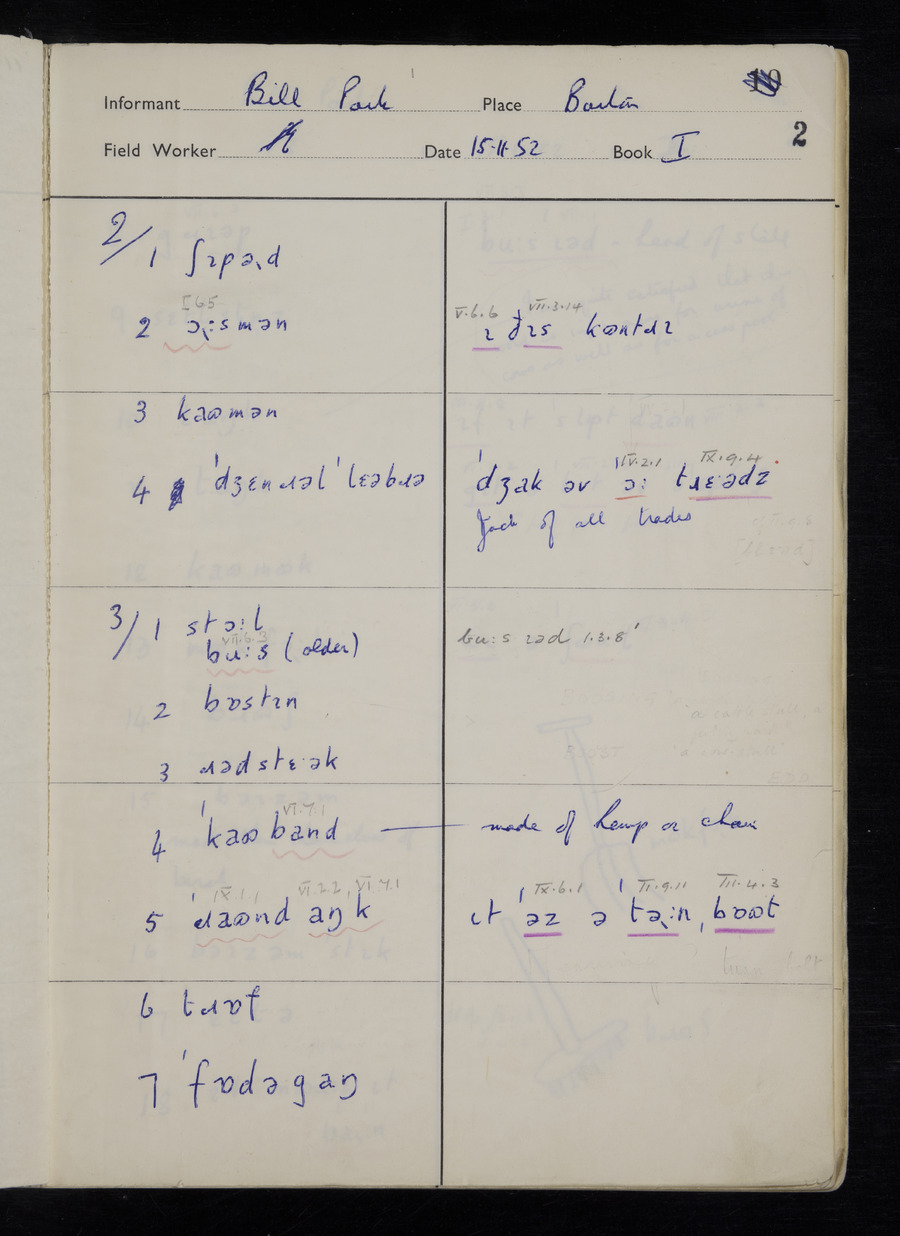 Informant Bill Park Place
2
Field Worker Date 15·11·52 Book I
2/
1 ʃɪpəd
I 65
2 ɔ̜:smən
V.6.6 VII.3.14
ɪ ðɪs kɒntɹɪ
3 kaʊmən
4 ˈdʒɛnɹəl ˈlɛəbɹə
IV.2.1 IX.9.4
ˈdʒak əv ɔ: tɹɛədz
Jack of all trades
3/
1 stɔ:l
VII.6.3
bu:s (older)
bu:s ɪəd 1.3.8
2 bɒstɪn
3 ɹɛdstɛ·ək
VI.7.1
4 ˈkaʊband
made of hemp or chain
IX.1.1 VI.2.2, VI.7.1
5 ˈɹaʊnd aŋk
IX.6.1 III.9.11 III.4.3
ɪt ˈəz ə ˈtə̜:n ˌbʊʊt
6 tɹɒf
7 ˈfɒdəgaŋ